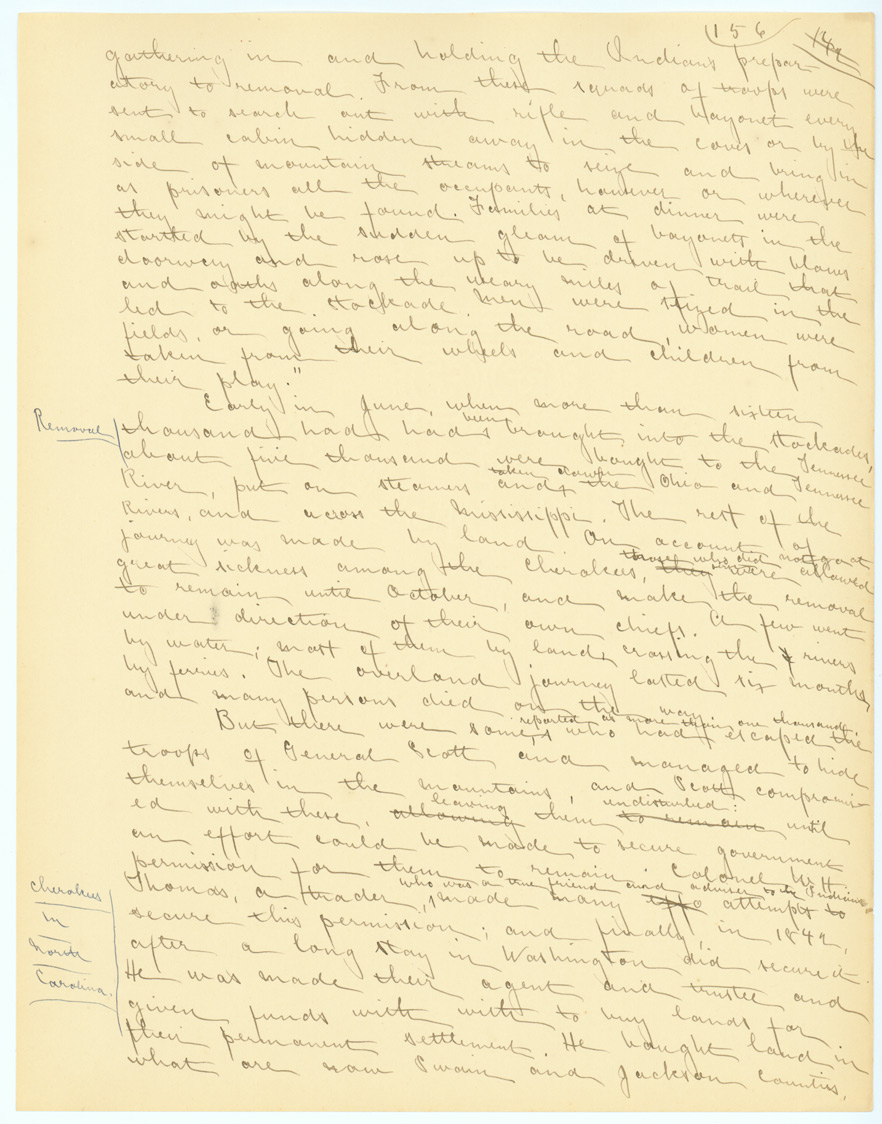 156
142
gathering in and holding the Indians prepar-
atory to removal. From these squads of troops were
sent to search out with rifle and bayonet every
small cabin hidden away in the coves or by the
side of mountain streams to seize and bring in
as prisoners all the occupants, however or wherever
they might be found. Families at dinner were
startled by the sudden gleam of bayonets in the
doorway and rose up to be driven with blows
and oaths along the weary miles of trail that
led to the stockade. Men were seized in the
fields, or going along the road, women were
taken from their wheels and children from
their play."
Early in June, when more than sixteen
Removal
thousand had had been brought into the stockades,
about five thousand were bought to the Tennessee
River, put on steamers and taken down the Ohio and Tennessee
Rivers, and across the Mississippi. The rest of the
journey was made by land. On account of
great sickness among the Cherokees, they those who did not go at were allowed
to remain until October, and make the removal
under direction of their own chiefs. A few went
by water; most of them by land, crossing the rivers
by ferries. The overland journey lasted six months,
and many persons died on the way.
But there were some, reported as more than one thousand, who had escaped the
troops of General Scott and managed to hide
themselves in the mountains, and Scott compromis-
ed with these, allowing leaving them to remain undisturbed: until
an effort could be made to secure government
permission for them to remain. Colonel W. H.
Thomas, a trader, who was a true friend and adviser to the Indians, made many attempts to
Cherokees
in
North
Carolina.
secure this permission; and finally, in 1842,
after a long stay in Washington did secure it.
He was made their agent and trustee and
given funds with with to buy lands for
their permanent settlement. He bought land in
what are now Swain and Jackson Counties,